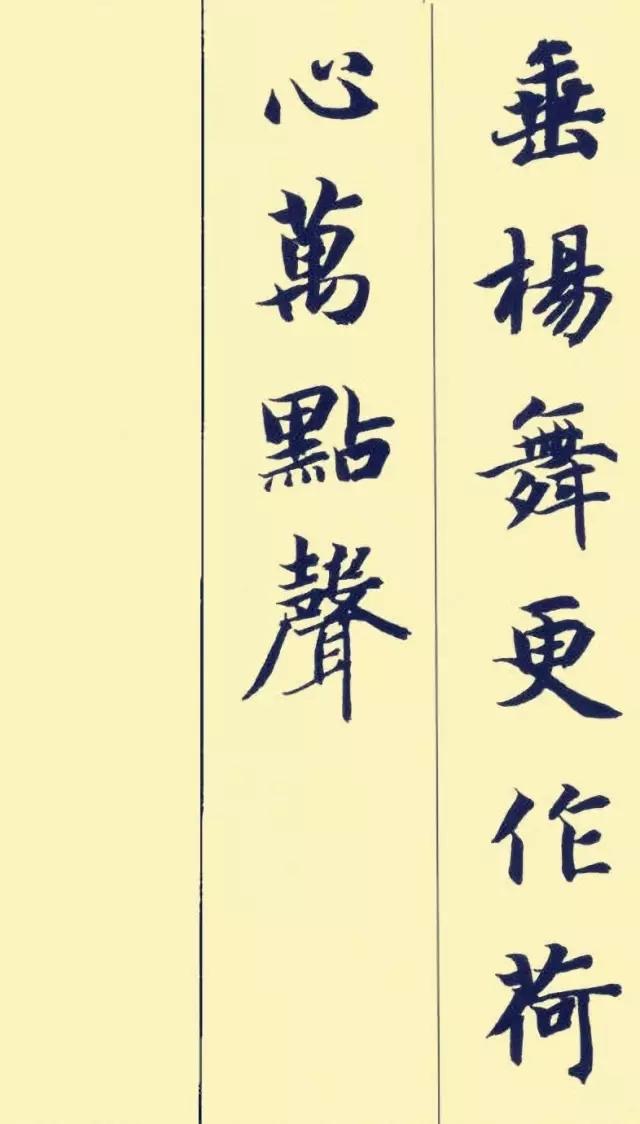 垂楊舞更作荷
心萬點聲